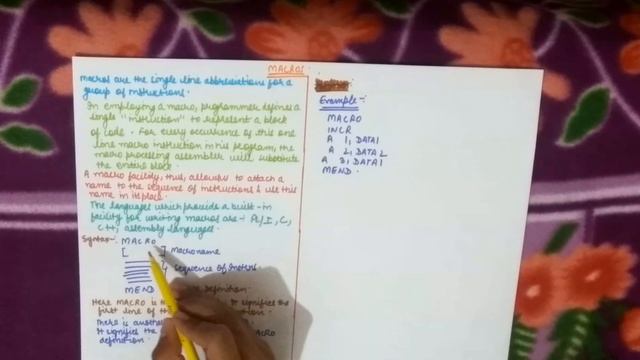 MACROS
Macros are the single line abbreviations for a
group of instructions.
In employing a macro, programmer defines a
single "instruction" to represent a block
of code. For every occurrence of this one
line macro instruction in his program, the
macro processing assembler will substitute
the entire block.
A macro facility, thus, allows us to attach a
name to the sequence of instructions & use this
name in its place.
The languages which provide a built-in
facility for writing macros are :- PL/I, C,
C++, assembly languages.
Syntax :- MACRO
[ ] Macro name
Sequence of instns
MEND definition
Here MACRO is signifies the
first line of
There is another
It signifies the MACRO
definition.
Example :-
MACRO
INCR
A 1, DATA1
A 2, DATA2
A 3, DATA1
MEND.